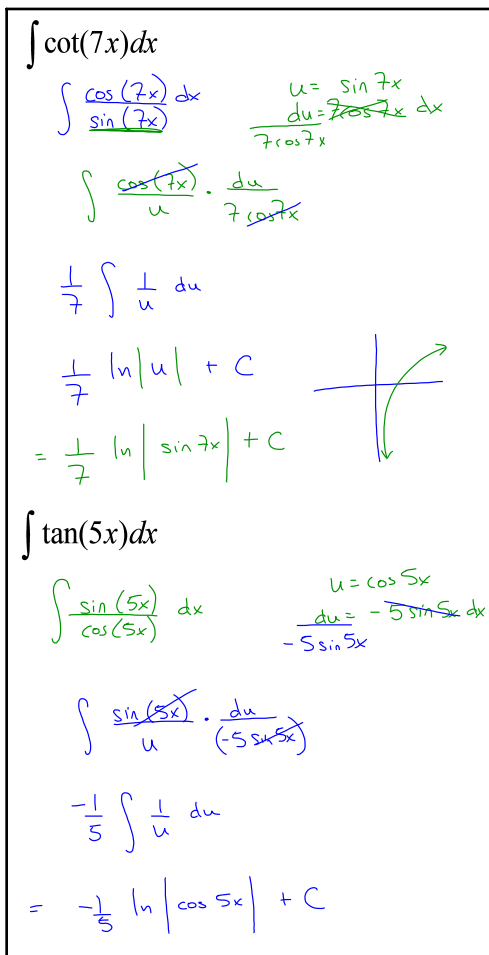 ∫ cot(7x)dx
∫ cos (7x) / sin (7x) dx
u = sin 7x
du = 7cos 7x dx
7cos7x
∫ cos (7x) / u · du / 7 cos7x
1/7 ∫ 1/u du
1/7 ln|u| + C
= 1/7 ln| sin 7x | + C
∫ tan(5x)dx
∫ sin (5x) / cos (5x) dx
u = cos 5x
du = -5 sin 5x dx
-5 sin 5x
∫ sin (5x) / u · du / (-5 sin 5x)
-1/5 ∫ 1/u du
= -1/5 ln |cos 5x| + C